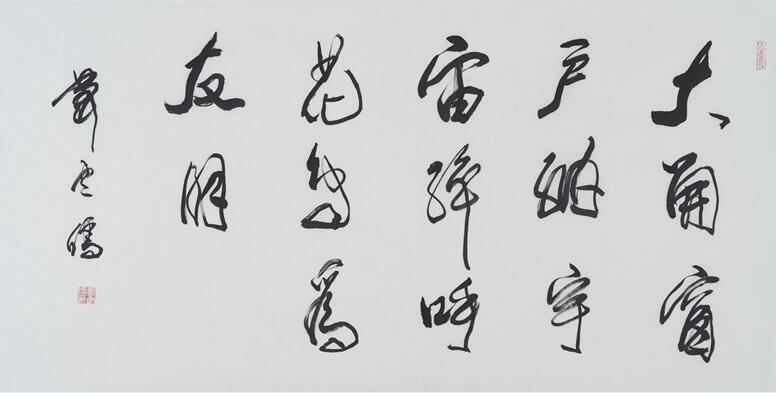 大開窗
户納宇
宙呼
花鳥為
友朋